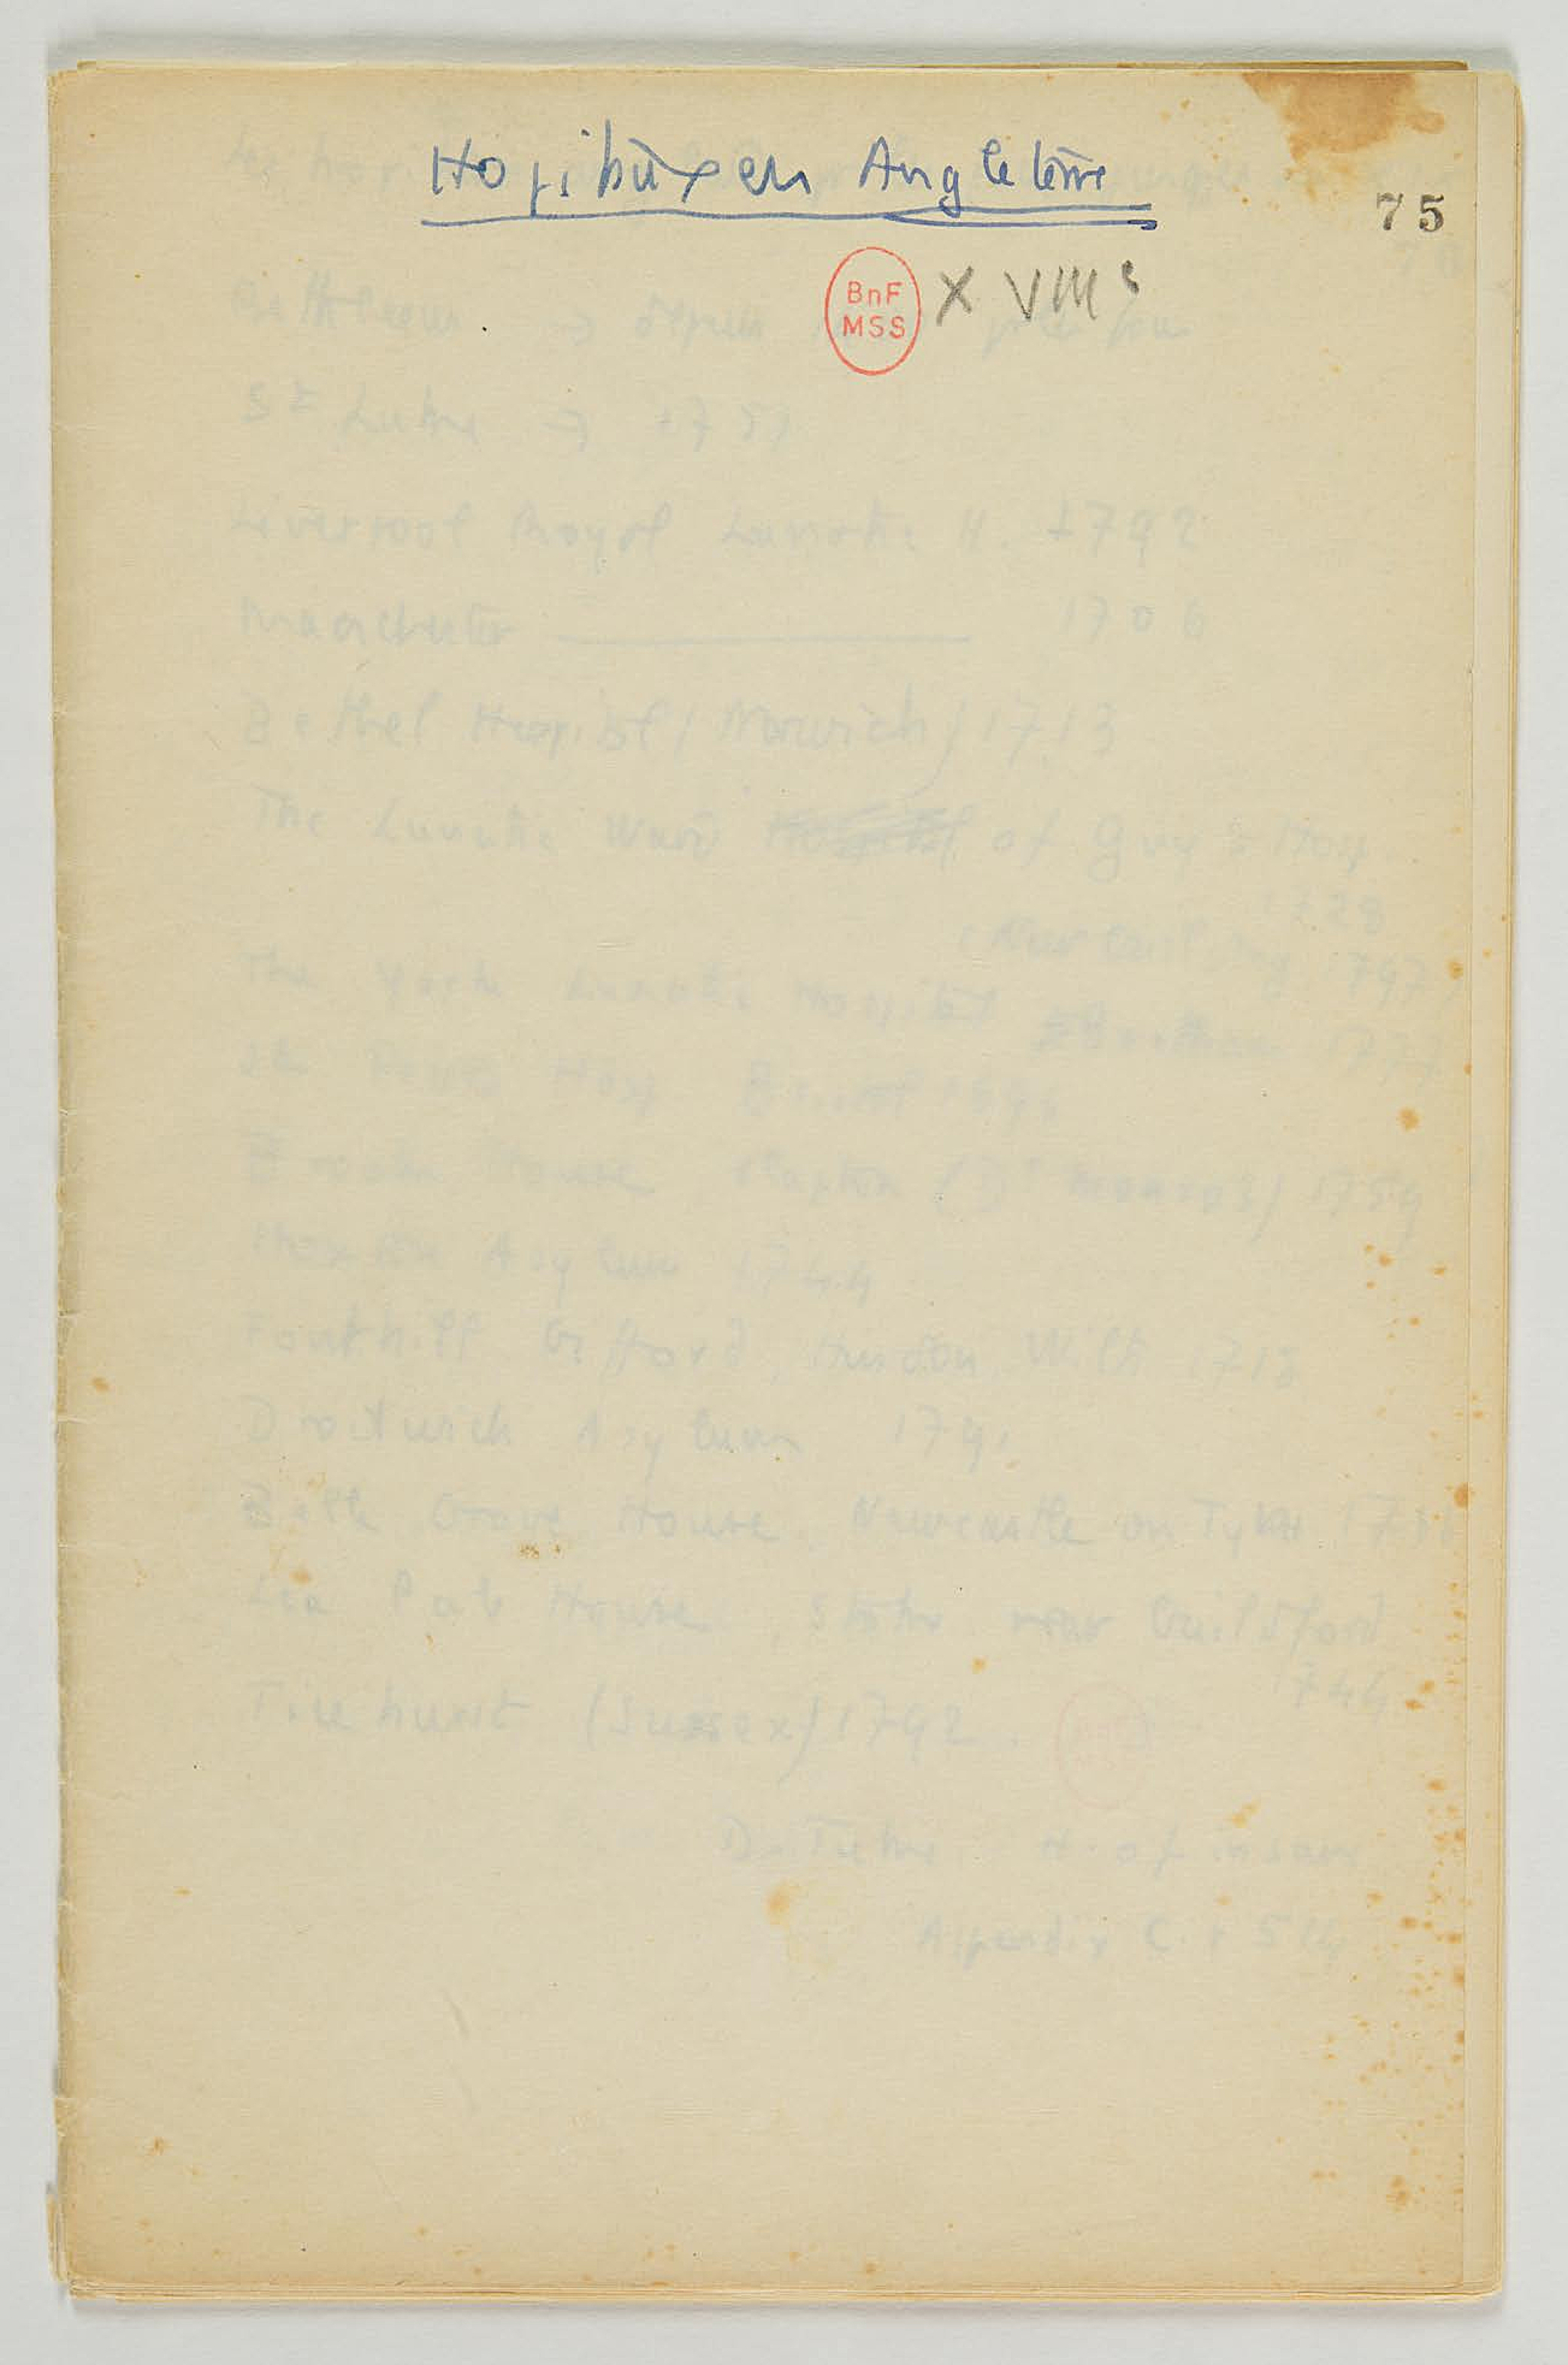 Hopitaux en Angleterre
75
BnF
MSS
XVIIIe
St Luke → 1751
Liverpool Royal Lunatic H. 1792
Manchester ———— 1706
Bethel Hospital (Norwich) 1713
The Lunatic Ward of Guy's Hosp
1728
(New building 1797)
The York Lunatic Hospital 1777
St Peter's Hosp. Bristol 1696
House Clapton (Dr Monro's) 1759
Hoxton Asylum 1744
Fonthill Gifford, Hindon, Wilts 1718
Droitwich Asylum 1791
Belle Grove House. Newcastle on Tyne
Lea House, Stoke near Guildford
1744
Ticehurst (Sussex) 1792.
D. Tuke. H. of insane
Appendix C.